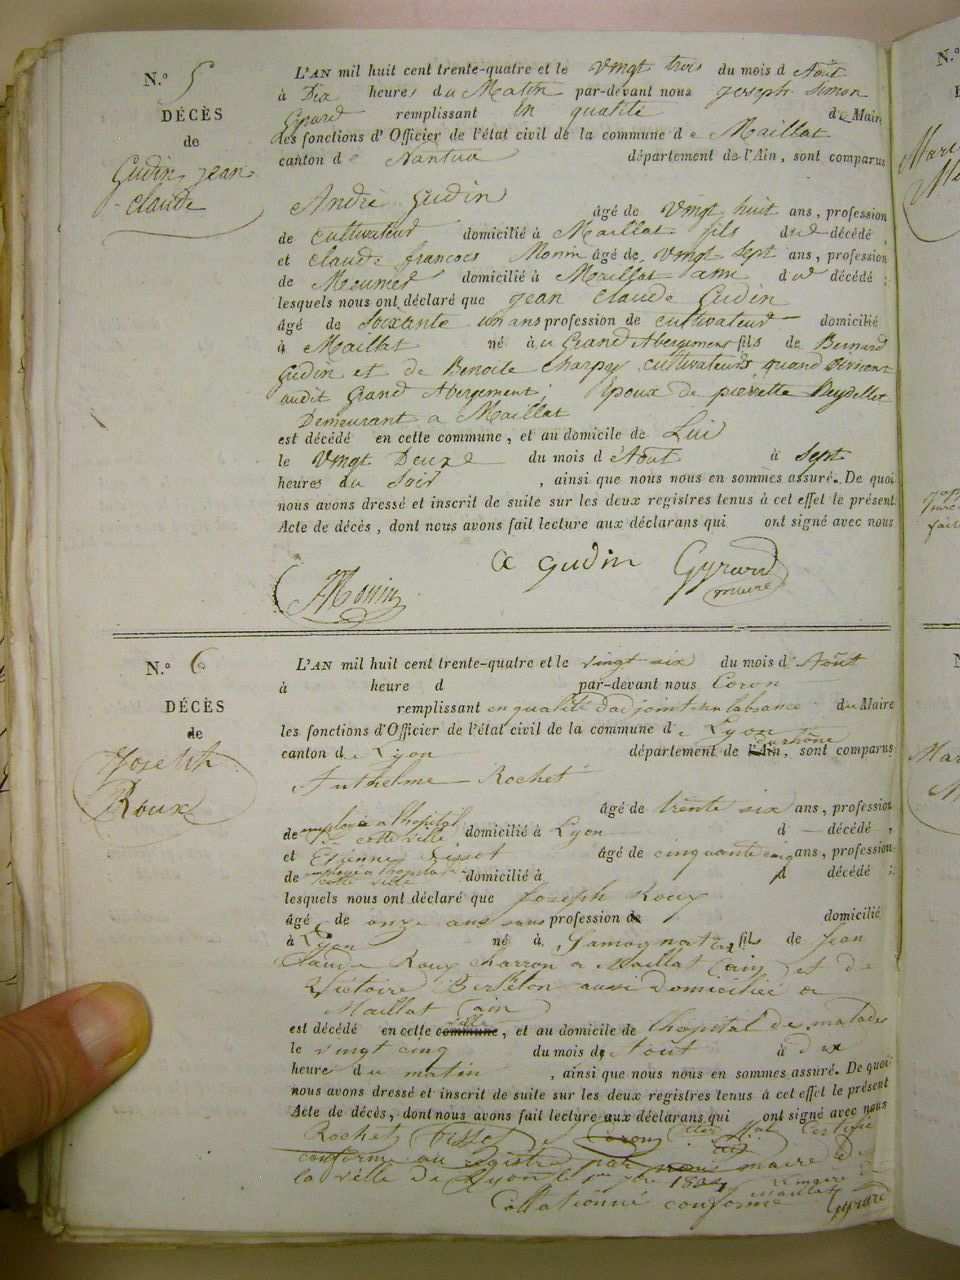 N.º 5
DÉCÈS
de
Gudin Jean
claude
L'AN mil huit cent trente-quatre et le vingt trois du mois d Août
à Dix heures du Matin par-devant nous joseph Simon
Gyrard remplissant en qualité de Maire
les fonctions d'Officier de l'état civil de la commune de Maillat
canton de Nantua département de l'Ain, sont comparus
André Gudin âgé de vingt huit ans, profession
de cultivateur domicilié à Maillat fils du décédé,
et claude françois Monin âgé de vingt sept ans, profession
de Meunier domicilié à Maillat ami du décédé;
lesquels nous ont déclaré que jean claude Gudin
âgé de Soixante un ans profession de cultivateur domicilié
à Maillat né à u Grand Abergement fils de Bernard
Gudin et de Benoite charpy cultivateurs quand vivront
audit Grand Abergement; Epoux de pierrette Beydellet
Demeurant a Maillat
est décédé en cette commune, et au domicile de Lui
le vingt Deuxe du mois d'Août à Sept
heures du Soir, ainsi que nous nous en sommes assuré. De quoi
nous avons dressé et inscrit de suite sur les deux registres tenus à cet effet le présent
Acte de décès, dont nous avons fait lecture aux déclarans qui ont signé avec nous
Monin a gudin Gyrard
maire
N.º 6
DÉCÈS
de
Joseph
Roux
L'AN mil huit cent trente-quatre et le vingt six du mois d'Août
à heure d par-devant nous Coron
remplissant en qualité d'adjoint en labsance du Maire
les fonctions d'Officier de l'état civil de la commune de Lyon
canton de Lyon département de l'Ain, du rhône sont comparus
Anthelme Rochet
âgé de trente six ans, profession
de employé a l'hopital de cette ville domicilié à Lyon d décédé,
et Etienne âgé de cinquante cinq ans, profession
de employé a cette ville domicilié à d décédé;
lesquels nous ont déclaré que Joseph Roux
âgé de onze ans sans profession de domicilié
à Lyon né à Samognat ain fils de Jean
Claude Roux charron a Maillat (ain) et de
Victoire Berleton aussi domiciliée a
Maillat (ain)
est décédé en cette commune ville, et au domicile de l'hopital des malades
le vingt cinq du mois de Août à dix
heure du matin, ainsi que nous nous en sommes assuré. De quoi
nous avons dressé et inscrit de suite sur les deux registres tenus à cet effet le présent
Acte de décès, dont nous avons fait lecture aux déclarans qui ont signé avec nous
Rochet Coron Certifié
conforme au registre par nous maire de
la ville de Lyon le 1er 7bre 1834 Le maire
Collationné conforme Maillat Gyrard